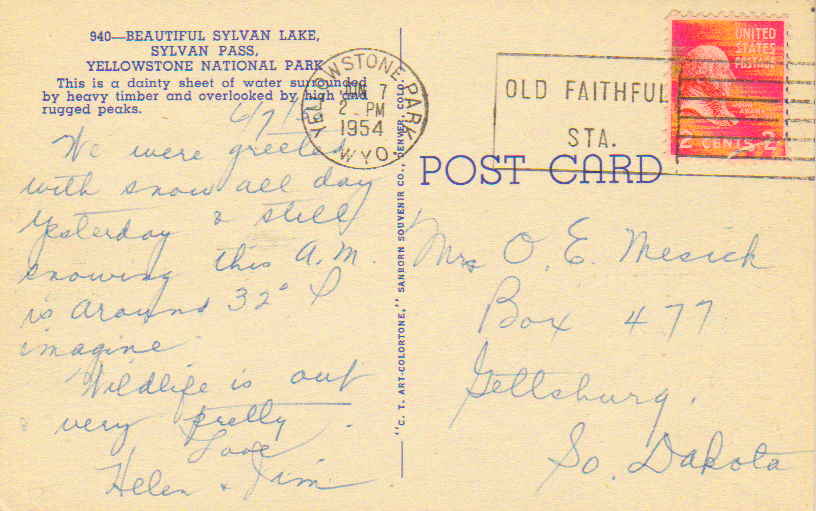 940—BEAUTIFUL SYLVAN LAKE,
SYLVAN PASS,
YELLOWSTONE NATIONAL PARK
This is a dainty sheet of water surrounded
by heavy timber and overlooked by high and
rugged peaks.
6/7/
We were greeted
with snow all day
yesterday & still
snowing this A.M.
is around 32° I
imagine.
Wildlife is out
very pretty.
Love
Helen & Jim
YELLOWSTONE PARK
JUN 7
2 PM
1954
WYO.
"C. T. ART-COLORTONE," SANBORN SOUVENIR CO., DENVER, COLO.
OLD FAITHFUL
STA.
UNITED
STATES
POSTAGE
2 CENTS 2
POST CARD
Mrs O. E. Mesick
Box 477
Gettsburg.
So. Dakota